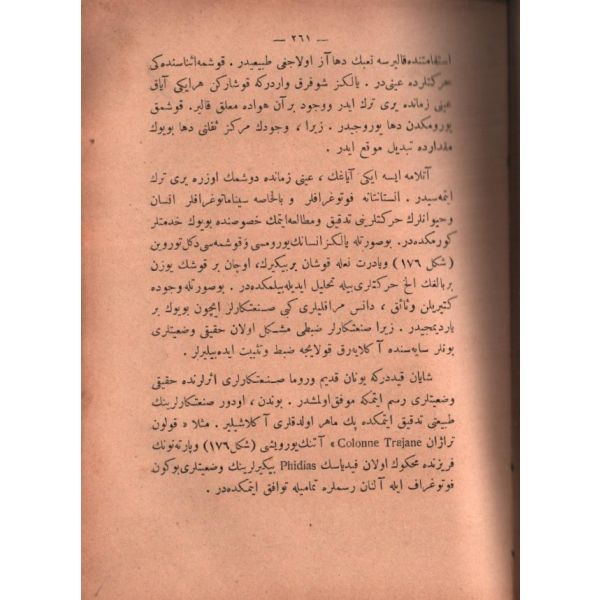 — ٢٦١ —
استقامتنده قالیرسه تعبك دها آز اولاجغی طبیعیدر . قوشمه اثناسنده‌کی
حرکتلرده عینی در . یالکز شو فرق واردرکه قوشارکن هرایکی آیاق
عینی زمانده یری ترك ایدر ووجود بر آن هواده معلق قالیر. قوشمق
یورومکدن دها یوروجیدر . زیرا ، وجودك مرکز ثقلی دها بویوك
مقدارده تبدیل موقع ایدر .
آتلامه ایسه ایکی آیاغك ، عینی زمانده دوشمك اوزره یری ترك
ایتمه‌سیدر . انستانتانه فوتوغرافلر و بالخاصه سینماتوغرافلر انسان
وحیوانلرك حرکتلرینی تدقیق ومطالعه ایتمك خصوصنده بویوك خدمتلر
کورمکده‌در. بوصورتله یالکز انسانك یورومسی وقوشمه‌سی دکل توروین
(شکل ١٧٦) ویادرت نعله قوشان بر بیکیرك، اوچان بر قوشك یوزن
بر بالغك الخ حرکتلری بیله تحلیل ایدیله بیلمکده‌در . بوصورتله وجوده
کتیریلن وثائق ، دانس مراقلیلری کبی صنعتکارلر ایچون بویوك بر
یاردیمجیدر . زیرا صنعتکارلر ضبطی مشکل اولان حقیقی وضعیتلری
بونلر سایه‌سنده آکلایه‌رق قولایجه ضبط وتثبیت ایده‌بیلیرلر .
شایان قیددرکه یونان قدیم وروما صنعتکارلری اثرلرنده حقیقی
وضعیتلری رسم ایتمکه موفق اولمشدر . بوندن ، اودور صنعتکارلرینك
طبیعتی تدقیق ایتمکده پك ماهر اولدقلری آکلاشیلیر . مثلا « قولون
تراژان Colonne Trajane » آتنك یورویشی (شکل ١٧٦) وپارته‌نونك
فریزنده محکوك اولان فیدیاسك Phidias بیکیرلرینك وضعیتلری بوکون
فوتوغراف ایله آلنان رسملره تمامیله توافق ایتمکده‌در .